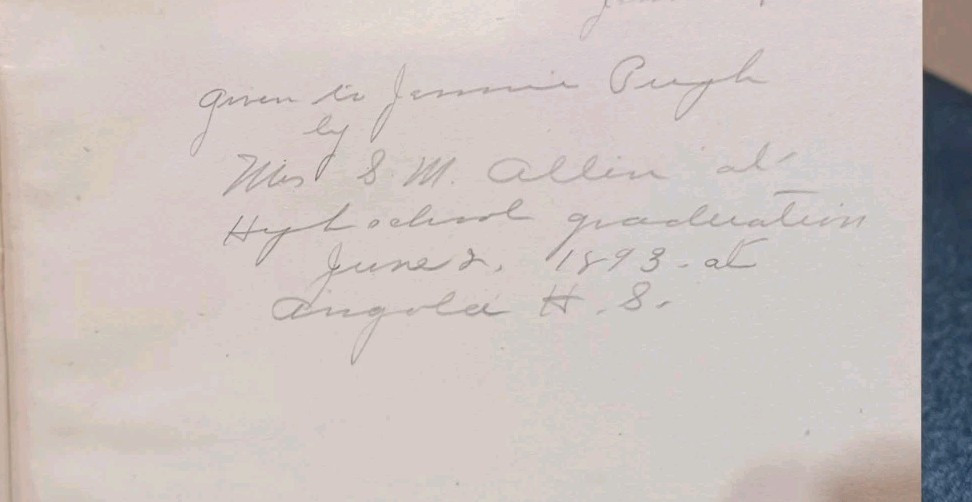 given to Jennie Pugh
by
Mrs S. M. Allen at
High school graduation
June 2, 1893 - at
Angola H. S.